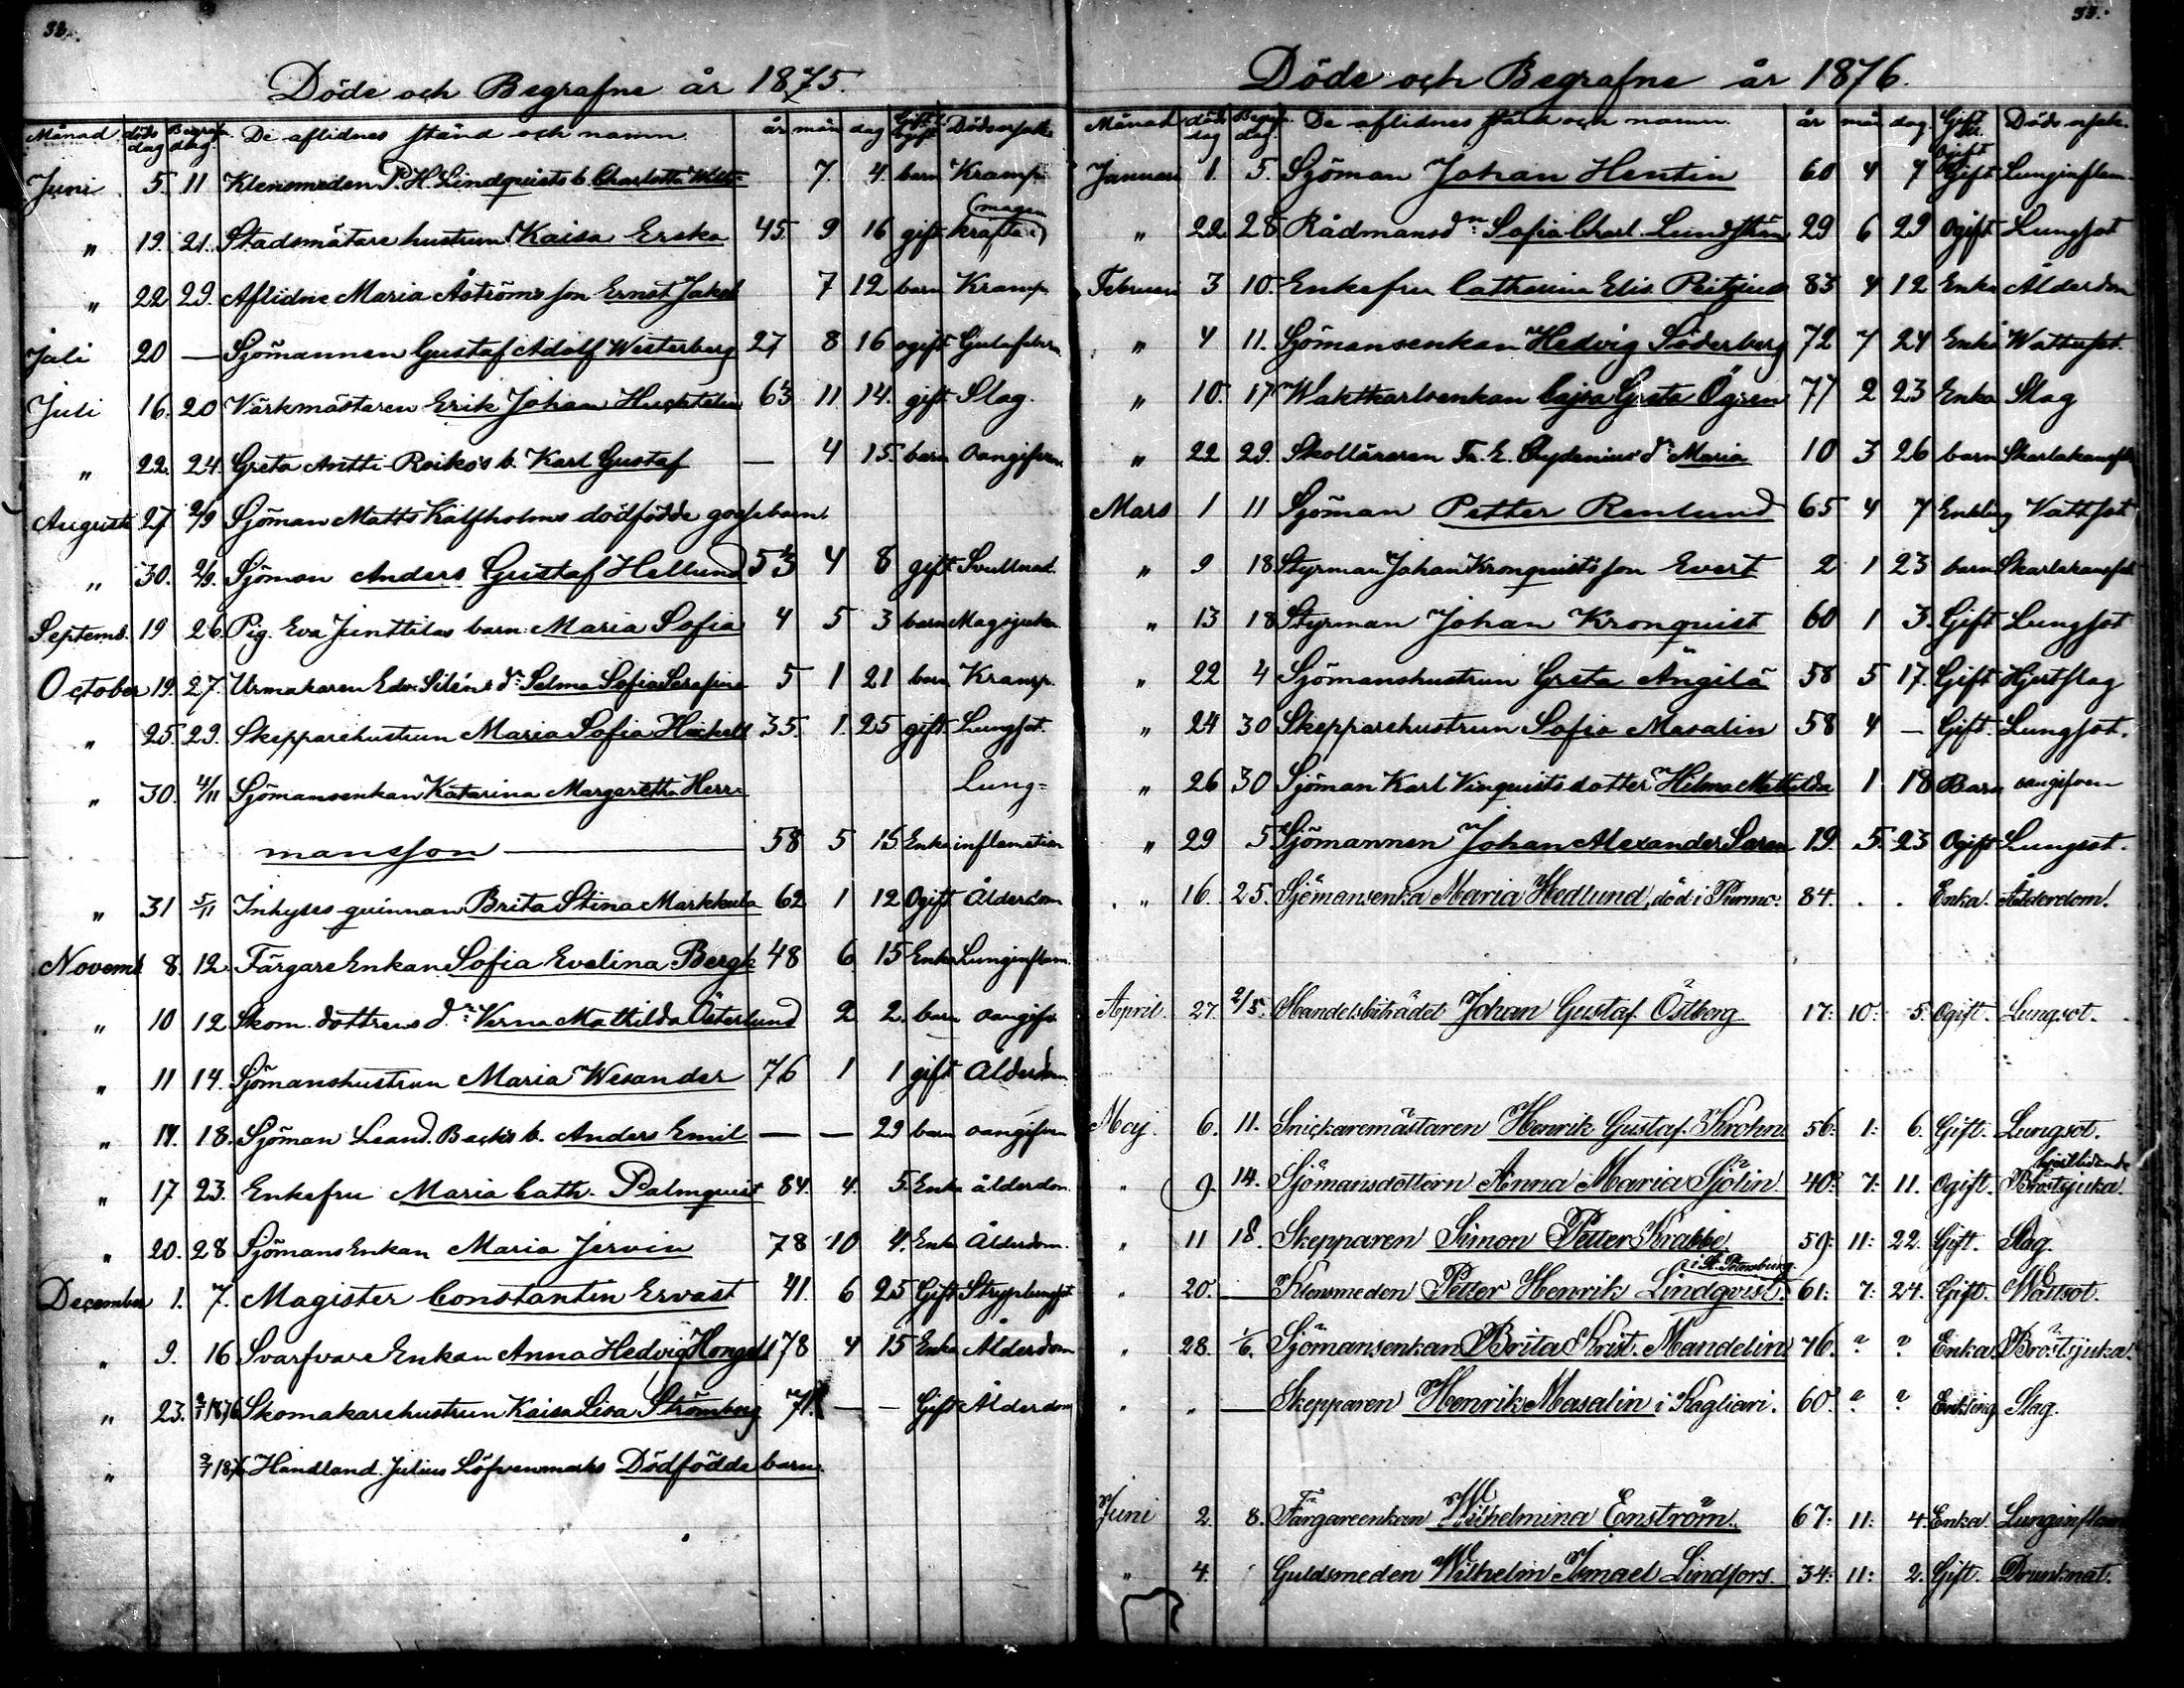 Döde och Begrafne år 1875.
Månad döds dag Begrafn. dag De aflidnes stånd och namn. år mån dag Gift Ogift Dödsorsak
Juni 5. 11 Klensmeden P. H. Lindquists b. Charlotta 7. 4. barn Kramp
" 19. 21. Stadsmätare hustrun Kaisa Erska 45. 9 16 gift kräfta (magen)
" 22 29. Aflidne Maria Åströms son Ernst Jakob 7 12 barn Kramp
Juli 20 — Sjömannen Gustaf Adolf Westerberg 27 8 16 ogift
Juli 16. 20 Värkmästaren Erik Johan 63 11 14. gift Slag.
" 22. 24. Greta Antti-Roikos b. Karl Gustaf — 4 15. barn oangifven
Augusti 27 2/9 Sjöman Matts Kälfholms dödfödde gossebarn
" 30. 2/9. Sjöman Anders Gustaf Hellund 53 4 8 gift Svullnad.
Septemb. 19 26. Pig. Eva Junttilas barn Maria Sofia 4 5 3 barn Magsjuka
October 19. 27. Urmakaren Edv. Siléns dr: Selma Sofia Serafina 5 1 21 barn Kramp.
" 25. 29. Skepparehustrun Maria Sofia Häckell 35. 1. 25 gift Lungsot.
" 30. 4/11 Sjömansenkan Katarina Margaretha Herr= Lung=
mansson — 58 5 15 Enka inflamation
" 31 5/11 Inhyses-quinnan Brita Stina Markkula 62 1 12 Ogift Ålderdom
Novemb. 8. 12. Färgare Enkan Sofia Evelina Bergk 48 6 15 Enka Lunginflam.
" 10 12 Skom. dottrens dr: Verna Mathilda Österlund 2 2. barn oangifv
" 11 14. Sjömanshustrun Maria Wesander 76 1 1 gift Ålderdom
" 14. 18. Sjöman Leand. Backs b. Anders Emil — — 29 barn oangifven
" 17 23. Enkefru Maria Cath. Palmquist 84. 4. 5. Enka ålderdom.
" 20. 28 Sjömans Enkan Maria Jervin 78 10 4. Enk Ålderdom.
December 1. 7. Magister Constantin Ervast 41. 6 25 Gift Stryplungsot
" 9. 16 Svarfvare Enkan Anna Hedvig Hongell 78 4 15 Enka Ålderdom
" 23. 2/1 1876 Skomakarehustrun Kaisa Lisa Strömberg 71. — — Gift Ålderdom
" 2/1 1876 Handland. Julius Löfvenmarks Dödfödde barn.
33.
Döde och Begrafne år 1876.
Månad döds dag Begrafn. dag. De aflidnes stånd och namn. år mån dag. Gift el. Ogift Döds orsak.
Januari 1. 5. Sjöman Johan Hentin 60 4 7 Gift Lunginflam.
" 22. 28 Rådmansdn: Sofia Charl. Lundstén 29 6 29 Ogift Lungsot
Februari 3 10. Enkefru Catherina Elis. Peitzius 83 4 12 Enka Ålderdom
" 4 11. Sjömansenkan Hedvig Söderberg 72 7 24 Enka Wattusot.
" 10. 17 Waktkarlsenkan Cajsa Greta Ögren 77 2 23 Enka Slag
" 22 29. Skolläraren Fr. E. Chydenius' dr: Maria 10 3 26 barn
Mars 1 11 Sjöman Petter Renlund 65 4 7 Enkling Vattsot
" 9 18 Styrman Johan Kronquists son Evert 2 1 23 barn
" 13 18 Styrman Johan Kronquist 60 1 3. Gift Lungsot
" 22 4 Sjömanshustrun Greta Ängilä 58 5 17. Gift Hjertslag
" 24 30 Skepparehustrun Sofia Masalin 58 4 — Gift. Lungsot.
" 26 30 Sjöman Karl Vinquists dotter Hilma Mathilda 1 18 Barn oangifven
" 29 5 Sjömannen Johan Alexander Saren 19. 5. 23 Ogift Lungsot.
" 16. 25. Sjömansenka Maria Hedlund, död i Purmo. 84. . . Enka. Ålderdom.
April. 27. 2/5. Handelsbiträdet Johan Gustaf Östberg. 17: 10: 5. Ogift. Lungsot.
Maj. 6. 11. Snickaremästaren Henrik Gustaf. Krohn. 56: 1: 6. Gift. Lungsot.
" 9. 14. Sjömansdottern Anna Maria Sjölin. 40: 7: 11. Ogift. Bröstsjuka.
" 11 18. Skepparen Simon Petter Krabbe 59: 11: 22. Gift. Slag.
" 20. — Klensmeden Petter Henrik Lindqvist. i St. Petersburg. 61: 7: 24. Gift. Wattsot.
" 28. 1/6. Sjömansenkan Brita Krist. Mandelin 76. ? ? Enka. Bröstsjuka.
" " — Skepparen Henrik Masalin i Kagliari. 60. ? ? Enkling Slag.
Juni 2. 8. Färgareenkan Wilhelmina Enström. 67: 11: 4. Enka. Lunginflam
" 4. Guldsmeden Wilhelm Ismael Lindfors. 34: 11: 2. Gift. Drunknat.